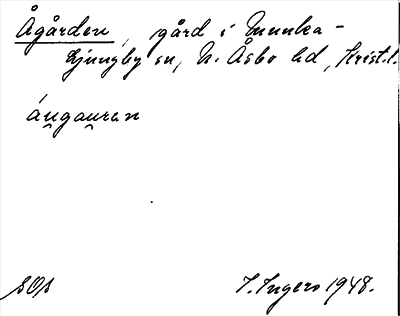 Ågården, gård i Munka-
Ljungby sn, N. Åsbo hd, Krist.l.
áu̯gau̯ran
SOs
I. Ingers 1948.